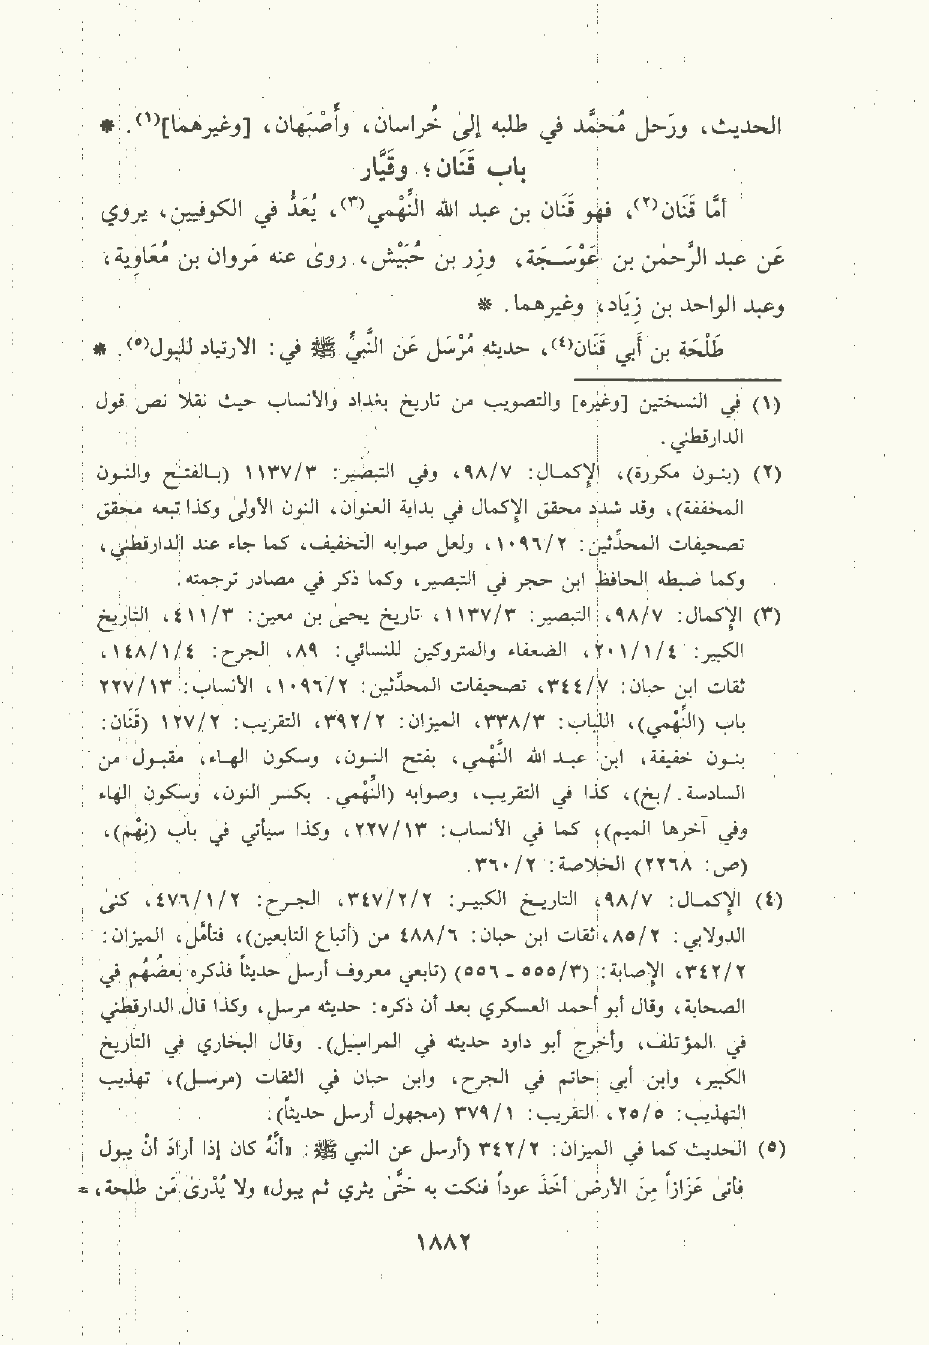 الحديث، ورَحل مُحمَّد في طلبه إلىٰ خُراسان، وأَصْبَهان، [وغيرهما](١). *
باب قَنَان؛ وقَيَّار
أمَّا قَنَان(٢)، فهو قَنَان بن عبد الله النِّهْمي(٣)، يُعَدُّ في الكوفيين، يروي
عَن عبد الرَّحمٰن بن عَوْسَـجَة، وزِر بن حُبَيْش، روىٰ عنه مَروان بن مُعَاوِية،
وعبد الواحد بن زِيَاد، وغيرهما. *
طَلْحَة بن أَبي قَنَان(٤)، حديثه مُرْسَل عَن النَّبيِّ ﷺ في: الارتياد للبول(٥). *
(١) في النسختين [وغيره] والتصويب من تاريخ بغداد والأنساب حيث نقلا نص قول
الدارقطني.
(٢) (بنـون مكررة)، الإكمـال: ٩٨/٧، وفي التبصير: ١١٣٧/٣ (بـالفتـح والنـون
المخففة)، وقد شدد محقق الإكمال في بداية العنوان، النون الأولىٰ وكذا تبعه محقق
تصحيفات المحدِّثين: ١٠٩٦/٢، ولعل صوابه التخفيف، كما جاء عند الدارقطني،
وكما ضبطه الحافظ ابن حجر في التبصير، وكما ذكر في مصادر ترجمته.
(٣) الإكمال: ٩٨/٧، التبصير: ١١٣٧/٣، تاريخ يحيىٰ بن معين: ٤١١/٣، التاريخ
الكبير: ٢٠١/١/٤، الضعفاء والمتروكين للنسائي: ٨٩، الجرح: ١٤٨/١/٤،
ثقات ابن حبان: ٣٤٤/٧، تصحيفات المحدِّثين: ١٠٩٦/٢، الأنساب: ٢٢٧/١٣
باب (النِّهْمي)، اللباب: ٣٣٨/٣، الميزان: ٣٩٢/٢، التقريب: ١٢٧/٢ (قَنَان:
بنـون خفيفة، ابن عبـد الله النَّهْمي، بفتح النـون، وسكون الهـاء، مقبـول من
السادسة./بخ)، كذا في التقريب، وصوابه (النِّهْمي. بكسر النون، وسكون الهاء
وفي آخرها الميم)، كما في الأنساب: ٢٢٧/١٣، وكذا سيأتي في باب (نِهْم)،
(ص: ٢٢٦٨) الخلاصة: ٣٦٠/٢.
(٤) الإكمـال: ٩٨/٧، التاريـخ الكبيـر: ٣٤٧/٢/٢، الجـرح: ٤٧٦/١/٢، كنىٰ
الدولابي: ٨٥/٢، ثقات ابن حبان: ٤٨٨/٦ من (أتباع التابعين)، فتأمَّل، الميزان:
٣٤٢/٢، الإصابة: (٥٥٥/٣ - ٥٥٦) (تابعي معروف أرسل حديثاً فذكره بعضُهُم في
الصحابة، وقال أبو أحمد العسكري بعد أن ذكره: حديثه مرسل، وكذا قال الدارقطني
في المؤتلف، وأخرج أبو داود حديثه في المراسيل). وقال البخاري في التاريخ
الكبير، وابن أبي حاتم في الجرح، وابن حبان في الثقات (مرسـل)، تهذيب
التهذيب: ٢٥/٥، التقريب: ٣٧٩/١ (مجهول أرسل حديثاً).
(٥) الحديث كما في الميزان: ٣٤٢/٢ (أرسل عن النبي ﷺ: «أنَّهُ كان إذا أرَادَ أنْ يبول
فأتىٰ عَزَازاً مِنَ الأرضِ أخَذَ عوداً فنكت به حَتَّىٰ يثري ثم يبول» ولا يُدْرىٰ مَن طلحة، =
١٨٨٢